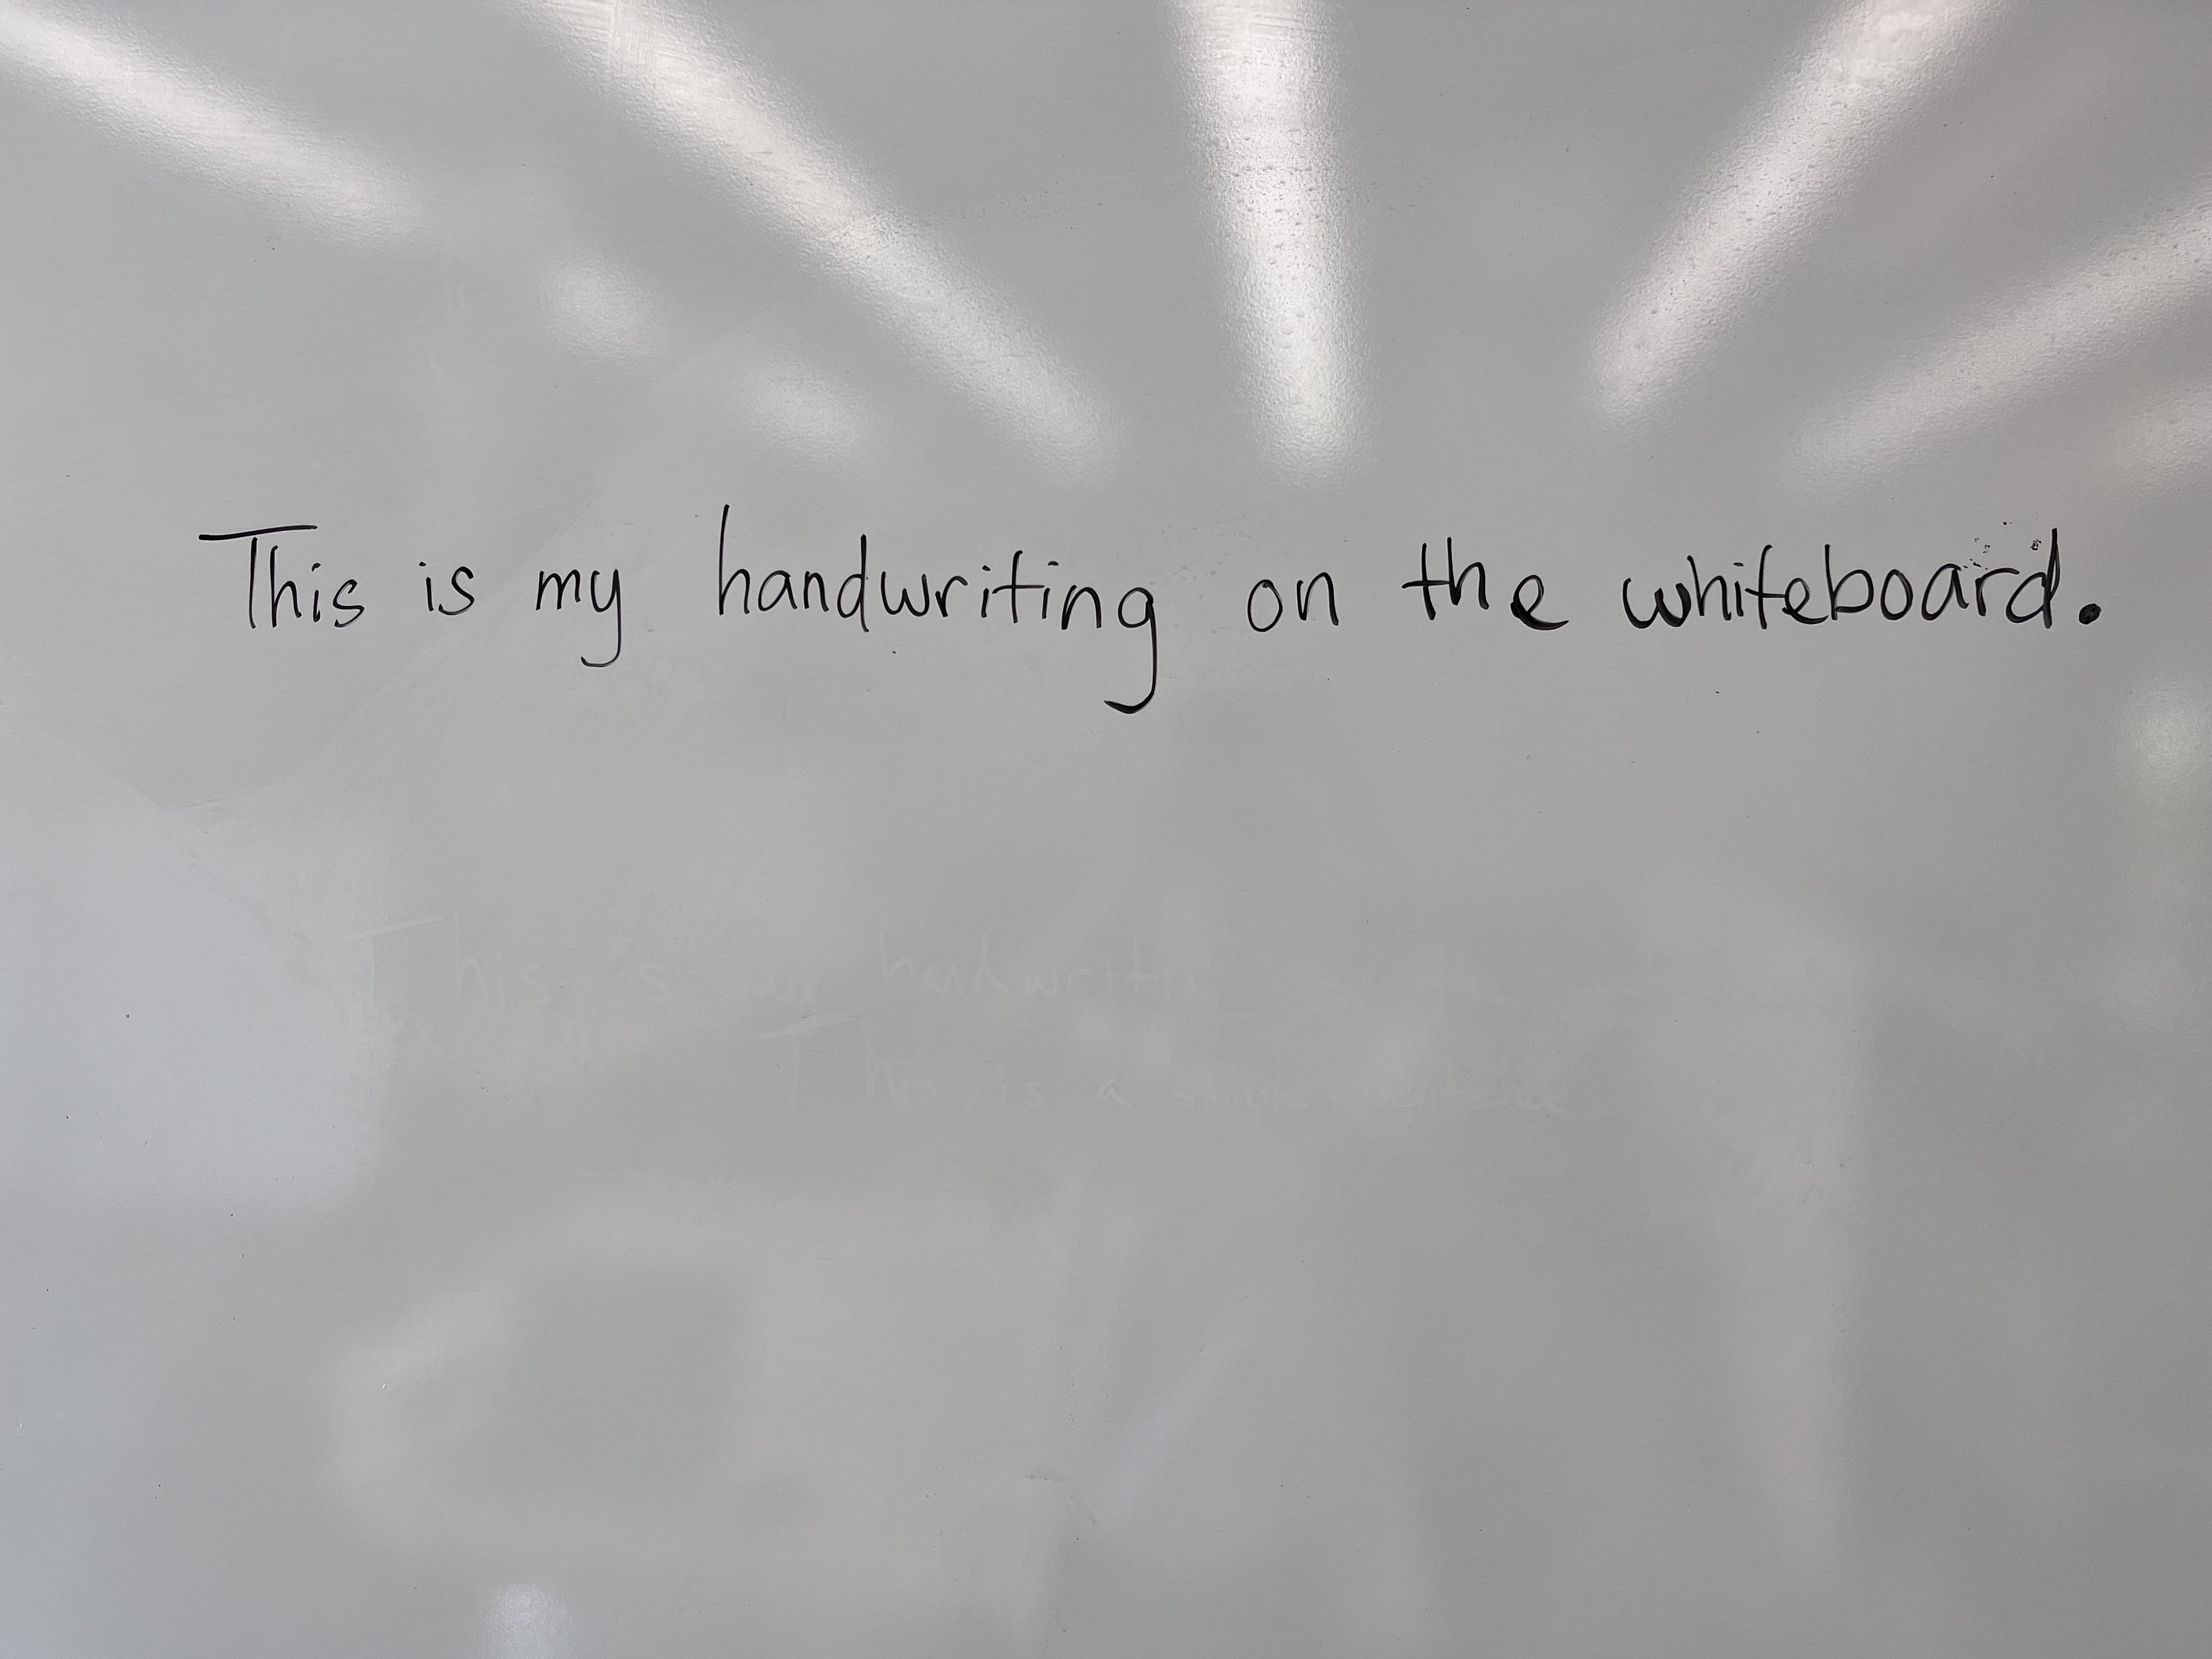 This is my handwriting on the whiteboard.
This is my handwriting
This is a simple sentence